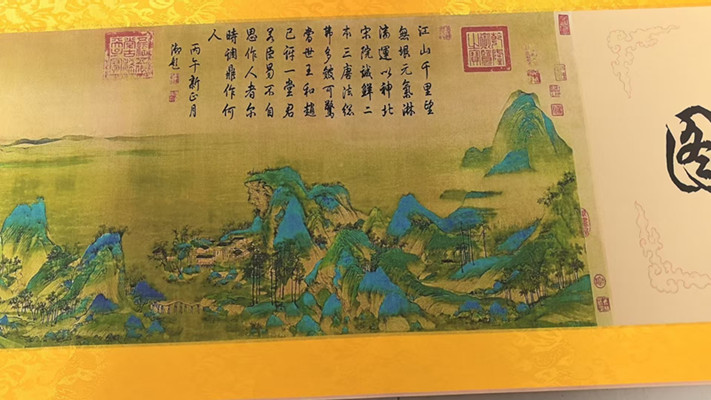 图
江山千里望
無垠元氣淋
漓運以神北
宋院誠鮮二
本三唐法總
弗多皴可驚
當世王和趙
已訝一堂君
若臣曷不自
思作人者爾
時調鼎作何
人
丙午新正月
御題